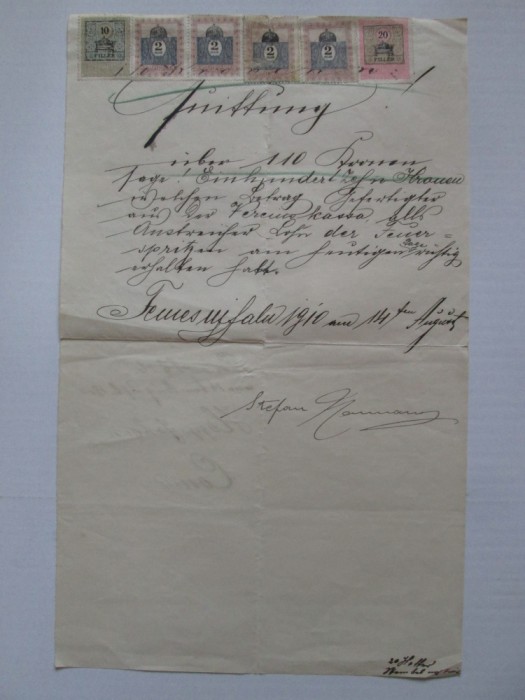 10 2 2 2 2 20
FILLÉR FILLÉR
Quittung
über 110 Kronen
sage! Einhundert Zehn Kronen
welchen Betrag Gefertigter
aus der Vereinskassa als
Anstreicher Lohn der Feuer=
spritzen am heutigen Tage richtig
erhalten habt.
Temesujfalu 1910 am 14ten August
Stefan
20 Heller